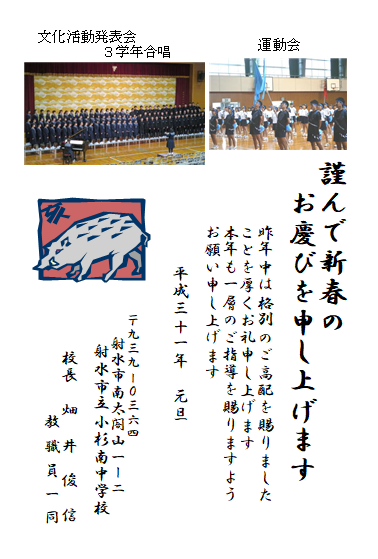 文化活動発表会
３学年合唱
運動会
謹んで新春の
お慶びを申し上げます
昨年中は格別のご高配を賜りました
ことを厚くお礼申し上げます
本年も一層のご指導を賜りますよう
お願い申し上げます
平成三十一年　元旦
〒九三九ー〇三六四
射水市南太閤山一ー二
射水市立小杉南中学校
校長　畑井俊信
教職員一同
亥